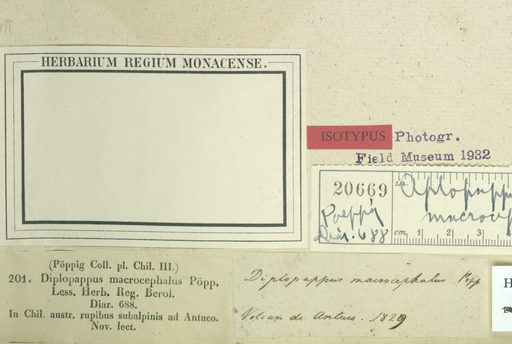 HERBARIUM REGIUM MONACENSE.
ISOTYPUS Photogr.
Field Museum 1932
20669
Poeppig
Diar. 688
in Aplopapp
macrocep
cm 1 2 3
(Pöppig Coll. pl. Chil. III.)
201. Diplopappus macrocephalus Pöpp.
Less. Herb. Reg. Berol.
Diar. 688.
In Chil. austr. rupibus subalpinis ad Antuco.
Nov. lect.
Diplopappus macrocephalus Pöpp
Volcan de Antuco. 1829
H